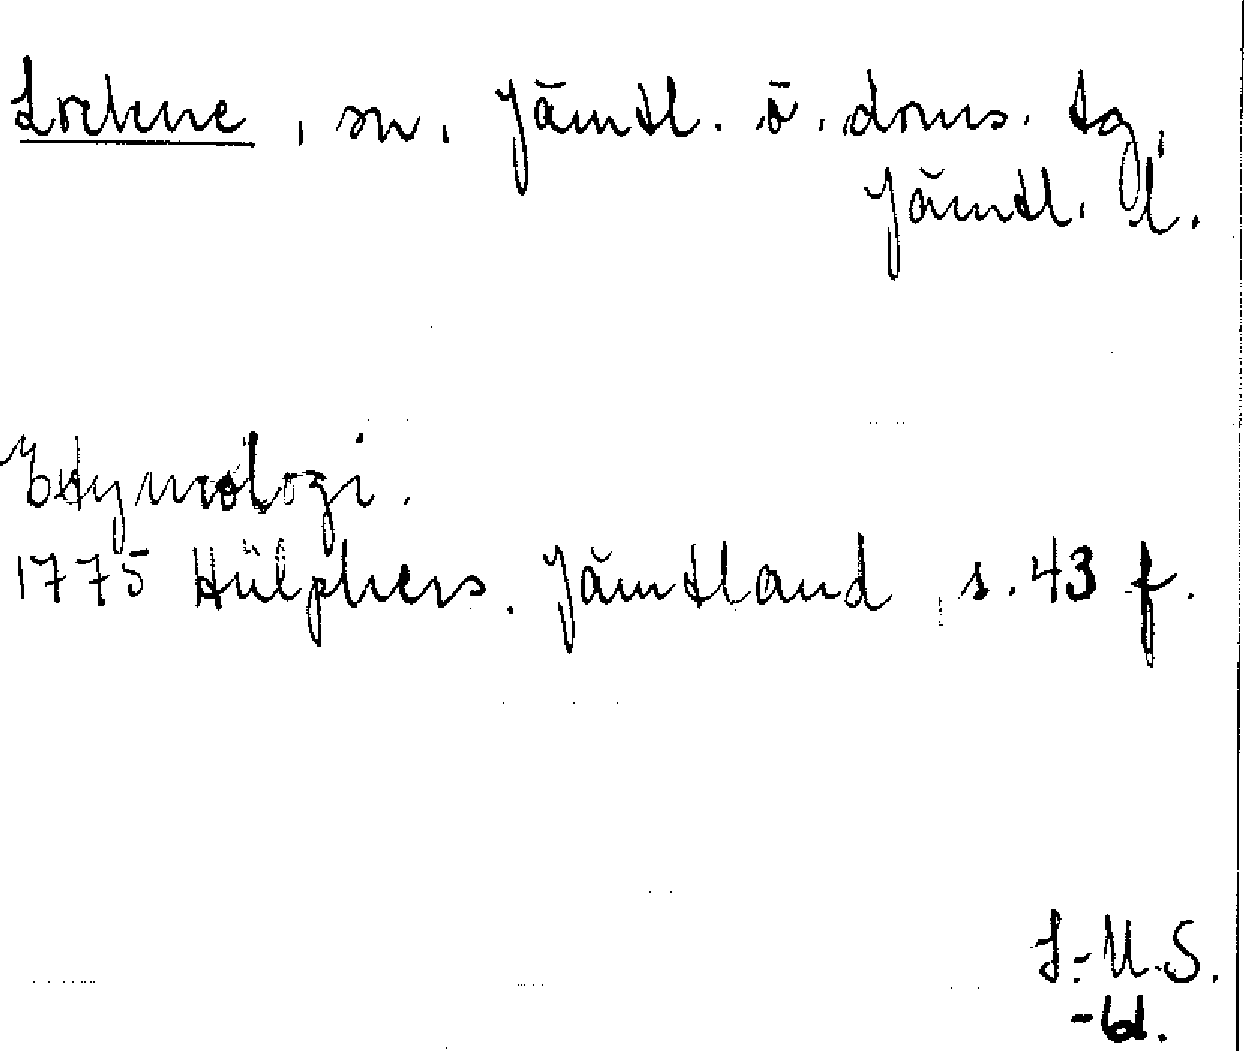 Lockne, sn. Jämtl. ö. doms. tg,
Jämtl. l.
Etymologi.
1775 Hülphers. Jämtland, s. 43 f.
J.-U.S.
-61.